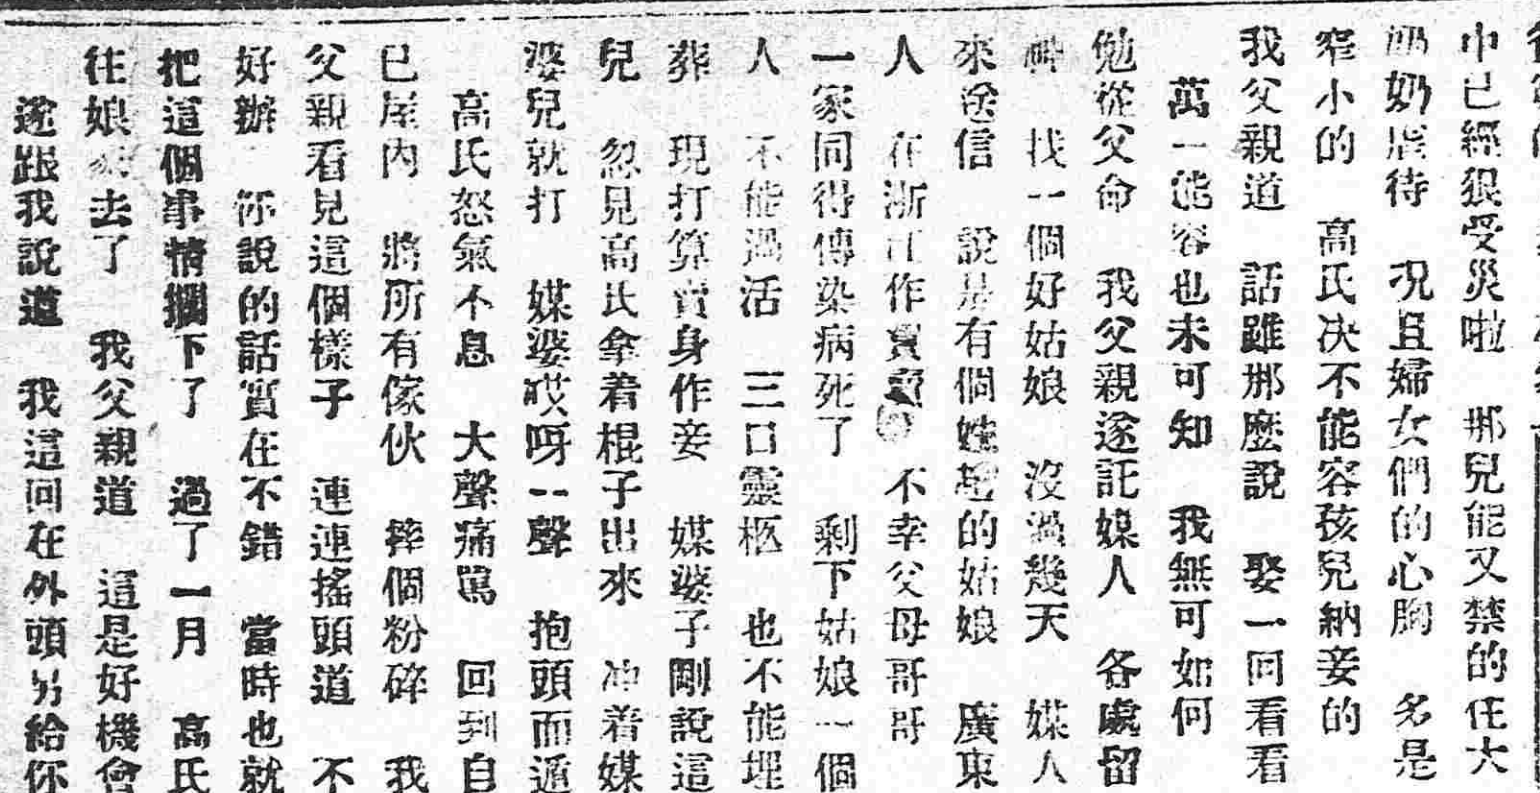 巾已經狠受災啦 那兒能又禁的住大
奶奶虐待 况且婦女們的心胸 名是
窄小的 高氏决不能容孩兒納妾的
我父親道 話雖那麽說 娶一回看看
萬一能容也未可知 我無可如何
勉從父命 我父親遂託媒人 各處留
神 找一個好姑娘 沒過幾天 媒人
來送信 說是有個姓的姑娘 廣東
人 在浙江作買賣 不幸父母哥哥
一家同得傳染病死了 剩下姑娘一個
人 不能過活 三口靈柩 也不能埋
葬 現打算賣身作妾 媒婆子剛說這
兒 忽見高氏拿着棍子出來 冲着媒
婆兒就打 媒婆哎呀一聲 抱頭而遁
高氏怒氣不息 大聲痛罵 回到自
已屋內 將所有傢伙 摔個粉碎 我
父親看見這個樣子 連連搖頭道 不
好辦 你說的話實在不錯 當時也就
把這個事情擱下了 過了一月 高氏
往娘家去了 我父親道 這是好機會
遂跟我說道 我這回在外頭另給你